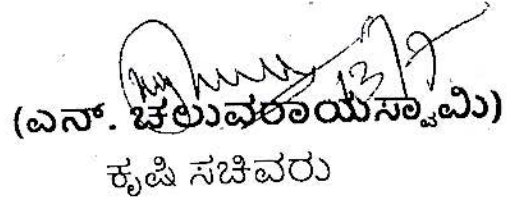 13/7
(ಎನ್. ಚಲುವರಾಯಸ್ವಾಮಿ)
ಕೃಷಿ ಸಚಿವರು